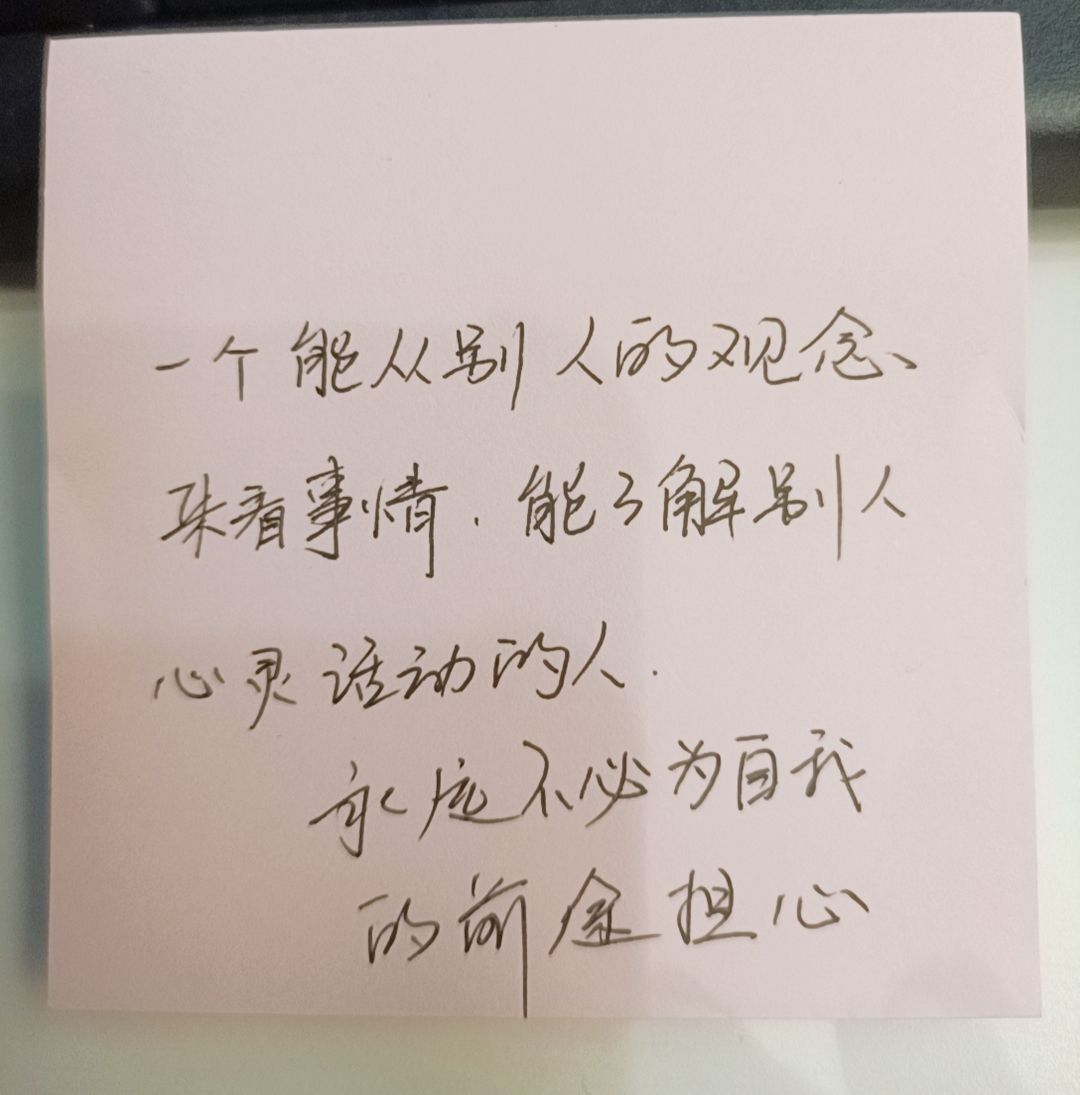 一个能从别人的观念、
来看事情.能了解别人
心灵活动的人.
永远不必为自我
的前途担心